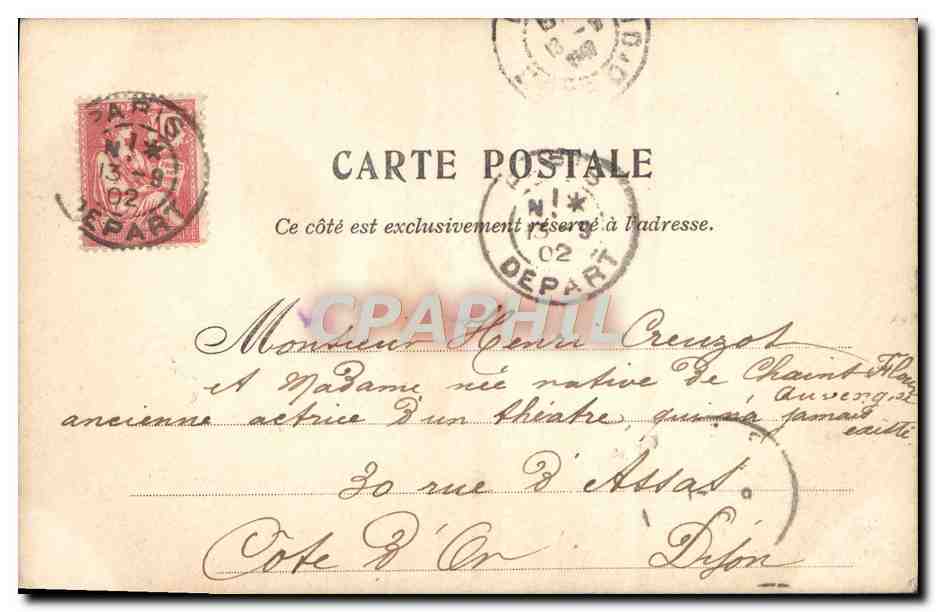 PARIS
N° 1 *
13 - 9
02
DEPART
CARTE POSTALE
N° 1 *
13 - 9
02
DEPART
Ce côté est exclusivement réservé à l'adresse.
CPAPHIL
Monsieur Henri Creuzot
et Madame née native de Chaint Flour
Auvergne
ancienne actrice d'un théatre, qui n'a jamais
existé
30 rue d'Assas
Côte d'Or Dijon